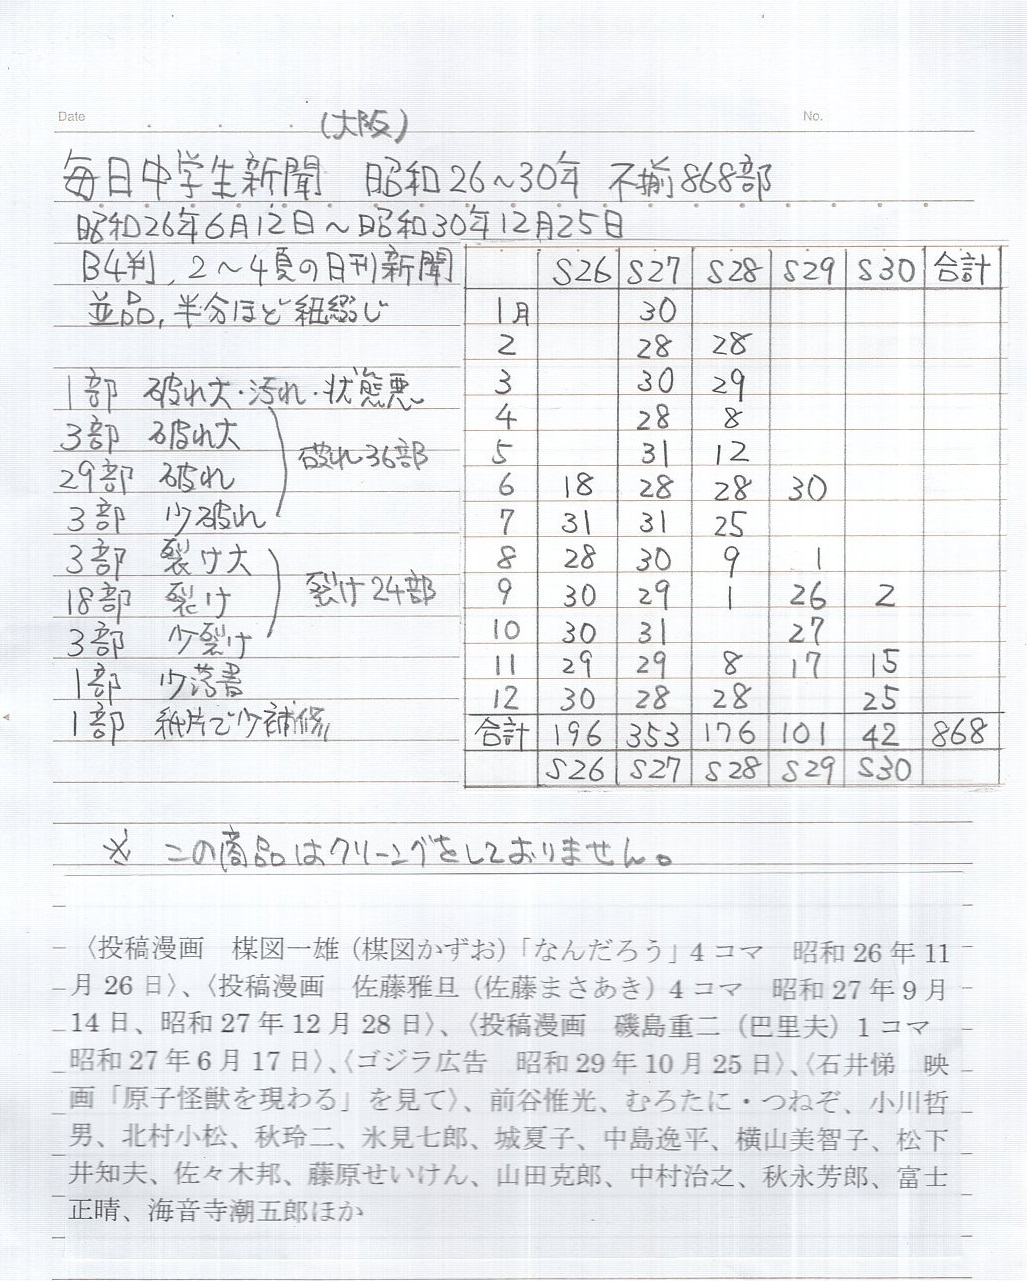 Date
(大阪)
No.
毎日中学生新聞 昭和26~30年 不揃868部
昭和26年6月12日~昭和30年12月25日
B4判,2~4頁の日刊新聞
並品,半分ほど紐綴じ
1部 破れ大・汚れ・状態悪
3部 破れ大
29部 破れ
3部 少破れ
破れ36部
3部 裂け大
18部 裂け
3部 少裂け
裂け24部
1部 少落書
1部 紙片で少補修
S26 S27 S28 S29 S30 合計
1月 30
2 28 28
3 30 29
4 28 8
5 31 12
6 18 28 28 30
7 31 31 25
8 28 30 9 1
9 30 29 1 26 2
10 30 31 27
11 29 29 8 17 15
12 30 28 28 25
合計 196 353 176 101 42 868
S26 S27 S28 S29 S30
※ この商品はクリーニングをしておりません。
〈投稿漫画 楳図一雄(楳図かずお)「なんだろう」4コマ 昭和26年11
月26日〉、〈投稿漫画 佐藤雅旦(佐藤まさあき)4コマ 昭和27年9月
14日、昭和27年12月28日〉、〈投稿漫画 磯島重二(巴里夫)1コマ
昭和27年6月17日〉、〈ゴジラ広告 昭和29年10月25日〉、〈石井悌 映
画「原子怪獣を現わる」を見て〉、前谷惟光、むろたに・つねぞ、小川哲
男、北村小松、秋玲二、氷見七郎、城夏子、中島逸平、横山美智子、松下
井知夫、佐々木邦、藤原せいけん、山田克郎、中村治之、秋永芳郎、富士
正晴、海音寺潮五郎ほか